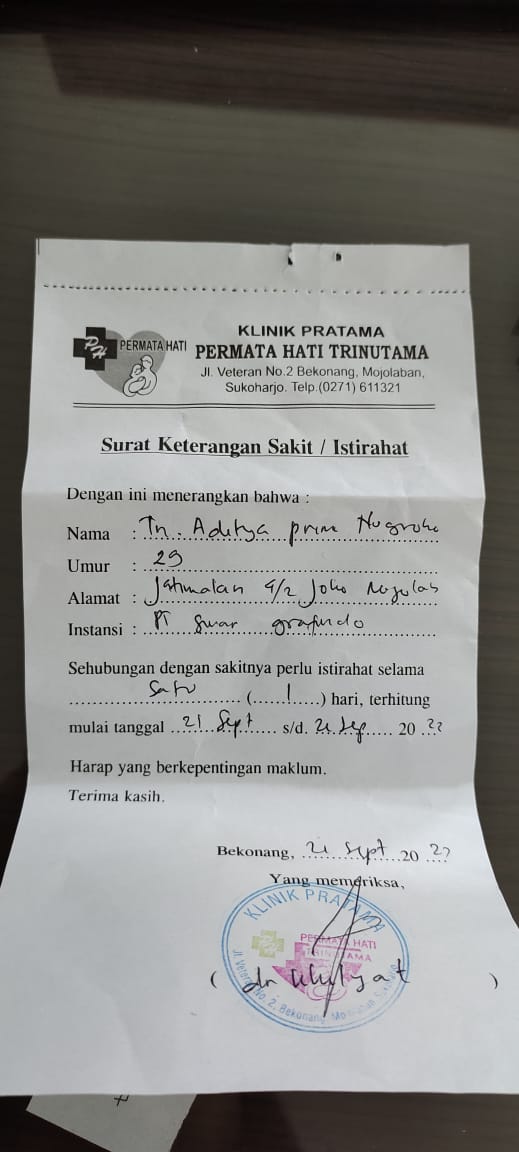 PH PERMATA HATI
KLINIK PRATAMA
PERMATA HATI TRINUTAMA
Jl. Veteran No.2 Bekonang, Mojolaban,
Sukoharjo. Telp.(0271) 611321
Surat Keterangan Sakit / Istirahat
Dengan ini menerangkan bahwa :
Nama : Tn. Aditya prima Nugroho
Umur : 29
Alamat : Jatimalan 4/2 Joho
Instansi : PT grafindo
Sehubungan dengan sakitnya perlu istirahat selama
Satu (1) hari, terhitung
mulai tanggal 21 Sept s/d. 21 Sep 20 22
Harap yang berkepentingan maklum.
Terima kasih.
Bekonang, 21 Sept 20 22
Yang memeriksa,
KLINIK PRATAMA
PERMATA HATI
TRINUTAMA
Jl. Veteran No. 2, Bekonang, Mojolaban, Sukoharjo
( dr )